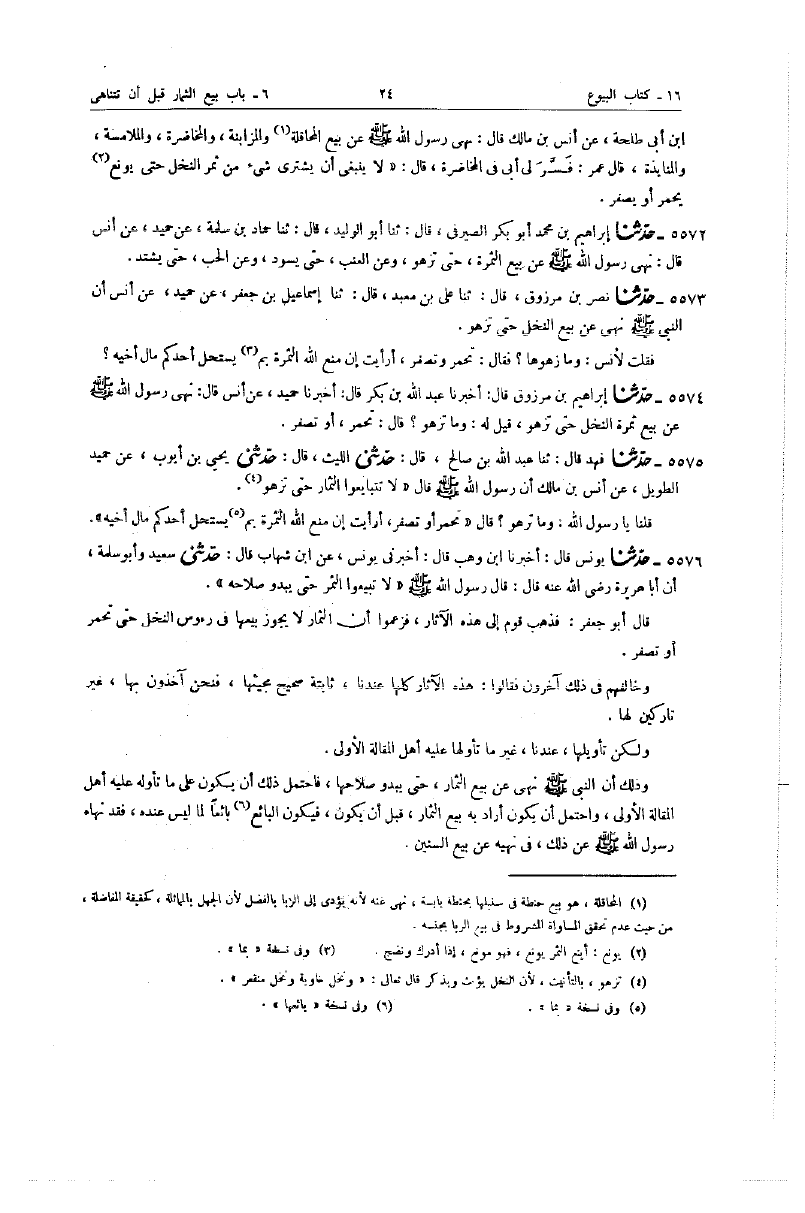 ١٦ - كتاب البيوع ٢٤ ٦ - باب بيع الثمار قبل أن تتناهى
ابن أبى طلحة ، عن أنس بن مالك قال : نهى رسول الله ﷺ عن بيع المحاقلة(١) والمزابنة ، والمخاضرة ، والملامسة ،
والمنابذة ، قال عمر : فَسَّرَ لى أبى فى المخاضرة ، قال : « لا ينبغى أن يشترى شىء من ثمر النخل حتى يونع(٢)
يحمر أو يصفر .
٥٥٧٢ - حدثنا إبراهيم بن محمد أبو بكر الصيرفى ، قال : ثنا أبو الوليد ، قال : ثنا حماد بن سلمة ، عن حميد ، عن أنس
قال : نهى رسول الله ﷺ عن بيع الثمرة ، حتى تزهو ، وعن العنب ، حتى يسود ، وعن الحب ، حتى يشتد .
٥٥٧٣ - حدثنا نصر بن مرزوق ، قال : ثنا على بن معبد ، قال : ثنا إسماعيل بن جعفر ، عن حميد ، عن أنس أن
النبي ﷺ نهى عن بيع النخل حتى تزهو .
فقلت لأنس : وما زهوها ؟ فقال : تحمر وتصفر ، أرأيت إن منع الله الثمرة بم(٣) يستحل أحدكم مال أخيه ؟
٥٥٧٤ - حدثنا إبراهيم بن مرزوق قال : أخبرنا عبد الله بن بكر قال : أخبرنا حميد ، عن أنس قال : نهى رسول الله ﷺ
عن بيع ثمرة النخل حتى تزهو ، قيل له : وما تزهو ؟ قال : تحمر ، أو تصفر .
٥٥٧٥ - حدثنا فهد قال : ثنا عبد الله بن صالح ، قال : حدثنى الليث ، قال : حدثنى يحيى بن أيوب ، عن حميد
الطويل ، عن أنس بن مالك أن رسول الله ﷺ قال « لا تتبايعوا الثمار حتى تزهو(٤) .
قلنا يا رسول الله : وما تزهو ؟ قال « تحمر أو تصفر ، أرأيت إن منع الله الثمرة بم(٥) يستحل أحدكم مال أخيه » .
٥٥٧٦ - حدثنا يونس قال : أخبرنا ابن وهب قال : أخبرنى يونس ، عن ابن شهاب قال : حدثنى سعيد وأبو سلمة ،
أن أبا هريرة رضى الله عنه قال : قال رسول الله ﷺ « لا تبيعوا الثمر حتى يبدو صلاحه » .
قال أبو جعفر : فذهب قوم إلى هذه الآثار ، فزعموا أن الثمار لا يجوز بيعها فى رءوس النخل حتى تحمر
أو تصفر .
وخالفهم فى ذلك آخرون فقالوا : هذه الآثار كلها عندنا ، ثابتة صحيح مجيئها ، فنحن آخذون بها ، غير
تاركين لها .
ولكن تأويلها ، عندنا ، غير ما تأولها عليه أهل المقالة الأولى .
وذلك أن النبي ﷺ نهى عن بيع الثمار ، حتى يبدو صلاحها ، فاحتمل ذلك أن يكون على ما تأوله عليه أهل
المقالة الأولى ، واحتمل أن يكون أراد به بيع الثمار ، قبل أن يكون ، فيكون البائع(٦) بائعاً لما ليس عنده ، فقد نهاه
رسول الله ﷺ عن ذلك ، فى نهيه عن بيع السنين .
(١) المحاقلة ، هو بيع حنطة فى سنبلها بحنطة يابسة ، نهى عنه لأنه يؤدى إلى الربا بالفضل لأن الجهل بالمماثلة ، كحقيقة المفاضلة ،
من حيث عدم تحقق المساواة المشروط فى بيع الربا بجنسه .
(٢) يونع : أينع الثمر يونع ، فهو مونع ، إذا أدرك ونضج . (٣) وفى نسخة « بما » .
(٤) تزهو ، بالتأنيث ، لأن النخل يؤنث ويذكر قال تعالى : « ونخل خاوية ونخل منقعر » .
(٥) وفى نسخة « بما » . (٦) وفى نسخة « بائعها » .